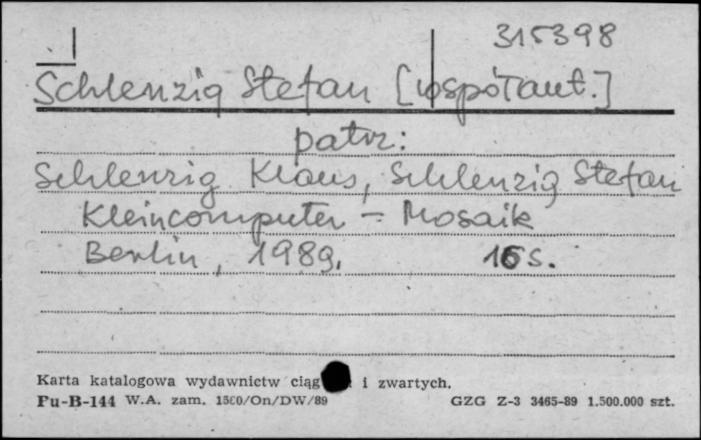 315398
Schlenzig Stefan [współaut.]
patrz:
Schlenzig Klaus, Schlenzig Stefan
Kleincomputer - Mosaik
Berlin, 1989. 16 s.
Karta katalogowa wydawnictw ciąg i zwartych.
Pu-B-144 W.A. zam. 1500/On/DW/89 GZG Z-3 3465-89 1.500.000 szt.